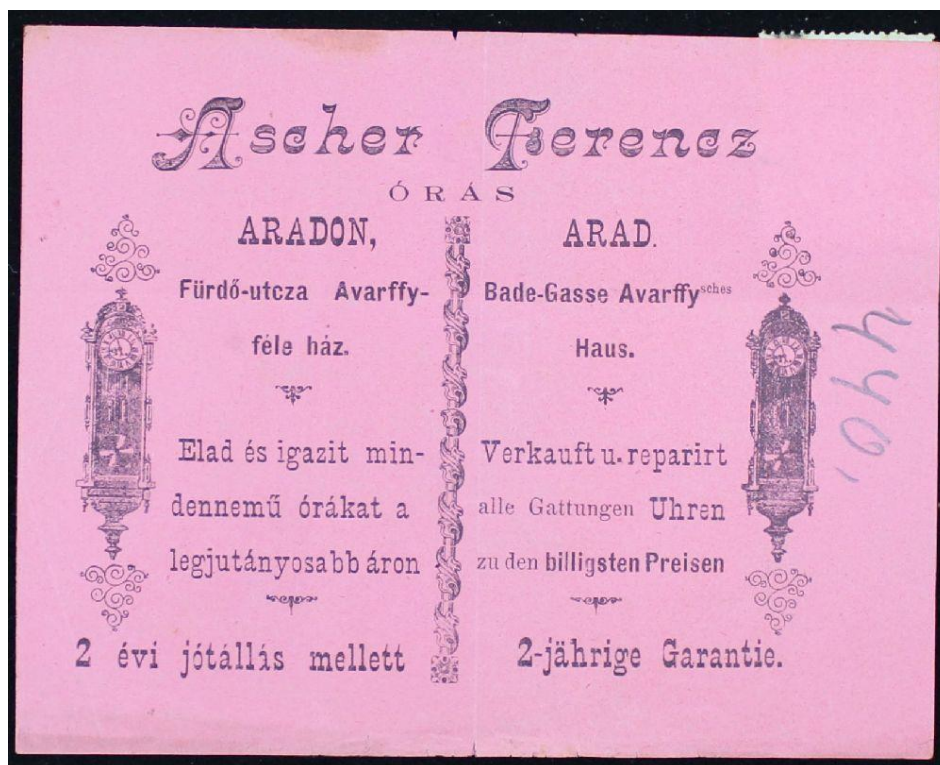 Ascher Ferencz
ÓRÁS
ARADON,
Fürdő-utcza Avarffy-
féle ház.
Elad és igazit min-
dennemű órákat a
legjutányosabb áron
2 évi jótállás mellett
ARAD.
Bade-Gasse Avarffysches
Haus.
Verkauft u. reparirt
alle Gattungen Uhren
zu den billigsten Preisen
2-jährige Garantie.
440,